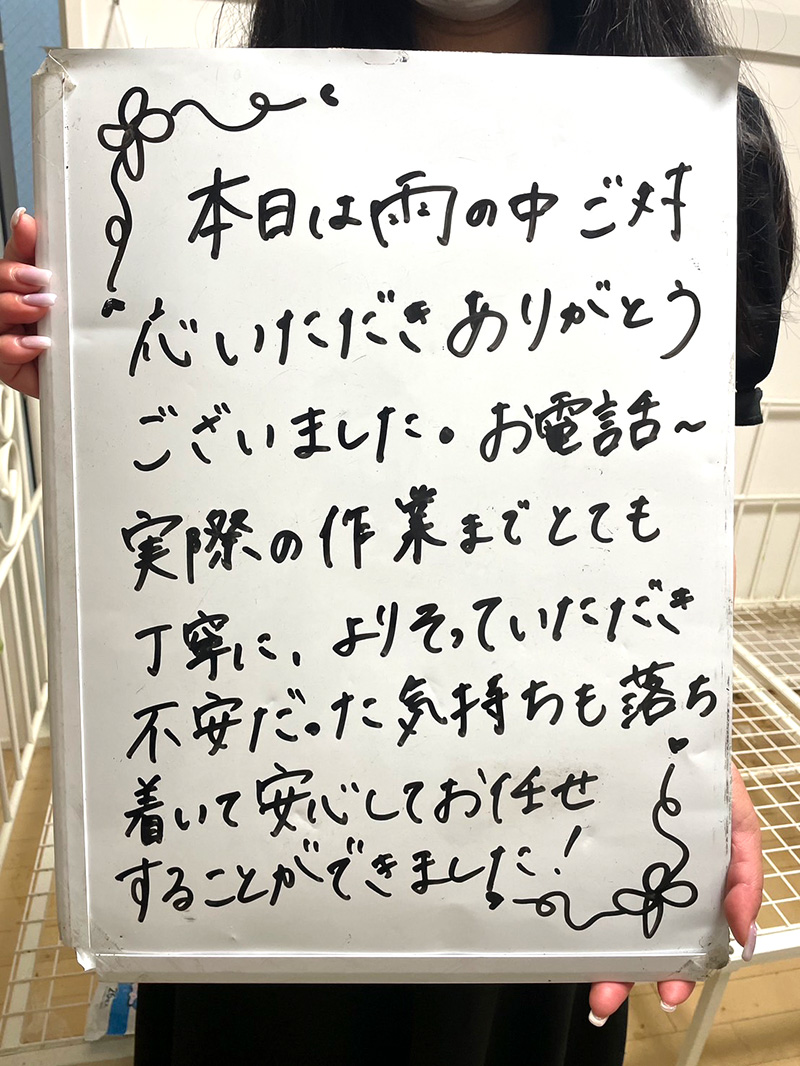 本日は雨の中ご対
応いただきありがとう
ございました。お電話~
実際の作業までとても
丁寧に、よりそっていただき
不安だった気持ちも落ち
着いて安心してお任せ
することができました!